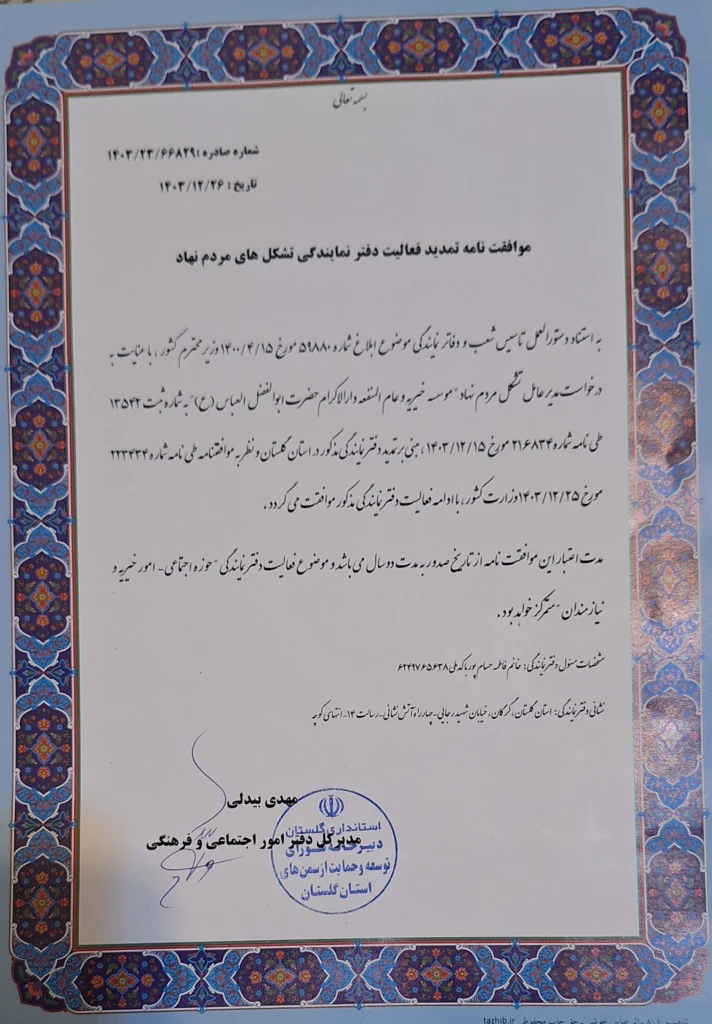 بسمه تعالی
شماره صادره :۱۴۰۳/۲۳/۶۶۸۲۹
تاریخ : ۱۴۰۳/۱۲/۲۶
موافقت نامه تمدید فعالیت دفتر نمایندگی تشکل های مردم نهاد
به استناد دستورالعمل تاسیس شعب و دفاتر نمایندگی موضوع ابلاغ شماره ۵۹۸۸۰ مورخ ۱۴۰۰/۴/۱۵ وزیر محترم کشور ، با عنایت به
درخواست مدیرعامل تشکل مردم نهاد "موسسه خیریه و عام المنفعه دارالاکرام حضرت ابوالفضل العباس (ع)" به شماره ثبت ۱۳۵۴۲
طی نامه شماره ۲۱۶۸۳۴ مورخ ۱۴۰۳/۱۲/۱۵ ، مبنی بر تمدید دفتر نمایندگی مذکور در استان گلستان و نظر به موافقتنامه طی نامه شماره ۲۲۳۴۳۴
مورخ ۱۴۰۳/۱۲/۲۵ وزارت کشور ، با ادامه فعالیت دفتر نمایندگی مذکور موافقت می گردد .
مدت اعتبار این موافقت نامه از تاریخ صدور به مدت دو سال می باشد و موضوع فعالیت دفتر نمایندگی "حوزه اجتماعی- امور خیریه و
نیازمندان" متمرکز خواهد بود .
مشخصات مسئول دفتر نمایندگی: خانم فاطمه حسام پور با کد ملی ۶۲۴۹۷۶۵۶۳۸
نشانی دفتر نمایندگی: استان گلستان، گرگان، خیابان شهید رجایی-چهارراه آتش نشانی-رسالت ۱۴-انتهای کوچه
مهدی بیدلی
مدیرکل دفتر امور اجتماعی و فرهنگی
استانداری گلستان
دبیرخانه شورای
توسعه و حمایت از سمن های
استان گلستان
tazhib.ir